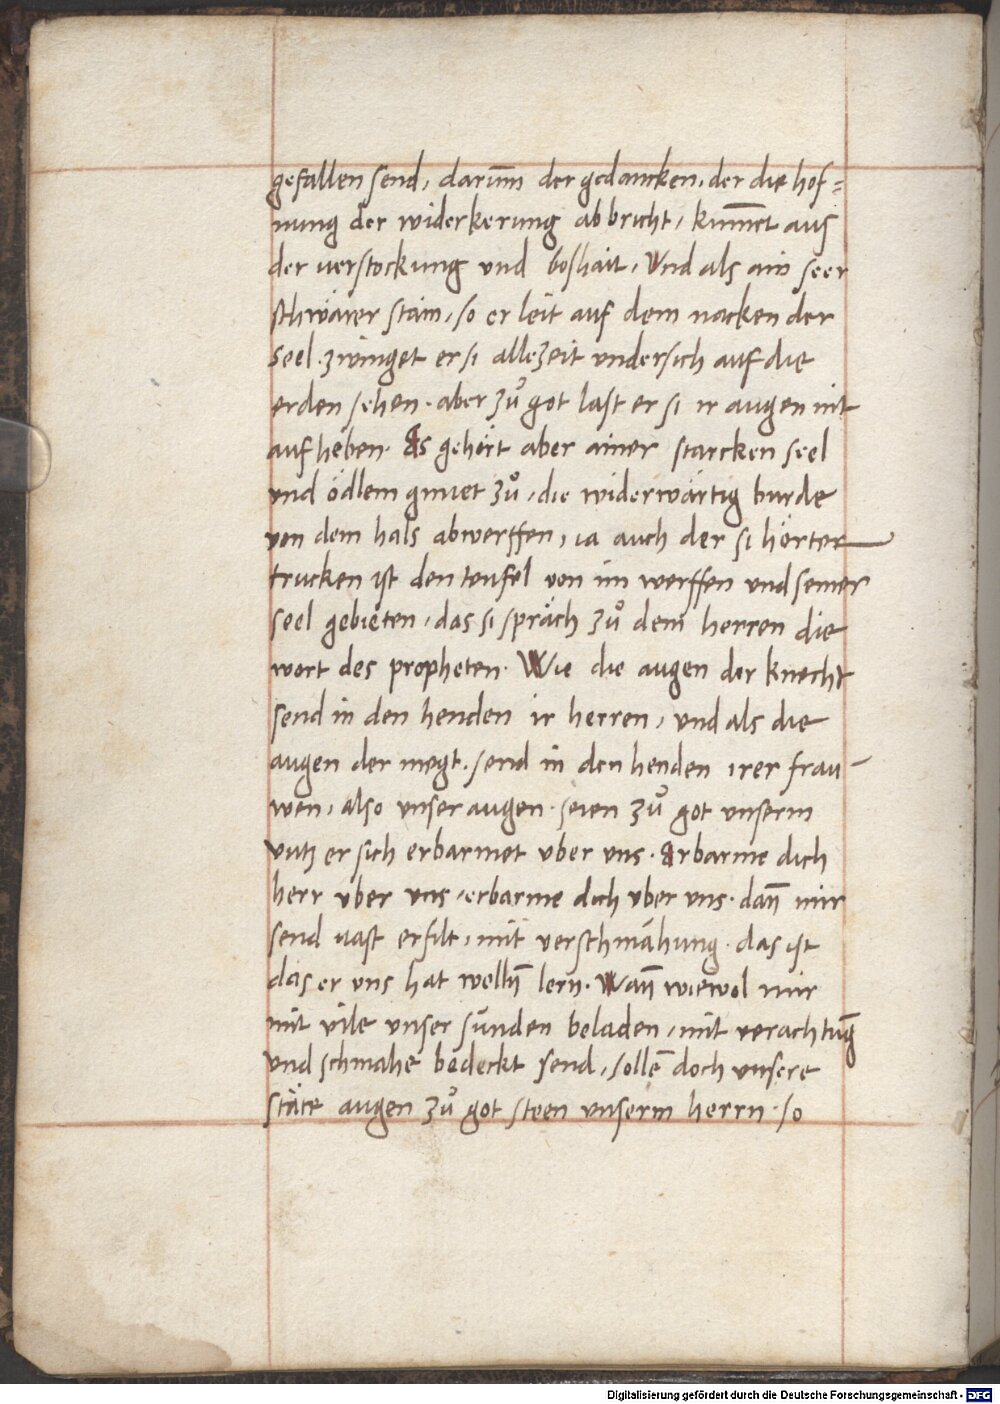 gefallen send, darum̄ der gedancken, der die hof=
nung der widerkerung abbricht, kum̄et aus
der verstockung und boshait, Und als ain seer
schwärer stain, so er leit auf dem nacken der
seel, zwinget er si allezeit undersich auf die
erden sehen. aber zů got last er si ir augen nit
aufheben. Es gehört aber ainer starcken seel
und ödlem gmuet zů, die widerwärtig burde
von dem hals abwerffen, ia auch der si hörter
trucken ist den teufel von im werffen und seiner
seel gebieten, das si spräch zů dem herren die
wort des propheten. Wie die augen der knecht
send in den henden ir herren, und als die
augen der megt. send in den henden irer frau-
wen, also unser augen. seien zů got unserm
untz er sich erbarmet uber uns. Erbarme dich
herr uber uns, erbarme dich uber uns. dan̄ mir
send vast erfilt, mit verschmähung. das ist
das er uns hat welln̄ lern. Wan̄ wiewol mir
mit vile unser sünden beladen, mit verachtunḡ
und schmahe bedeckt send, sollē doch unsere
stäte augen zů got steen unserm herrn. so
Digitalisierung gefördert durch die Deutsche Forschungsgemeinschaft - DFG